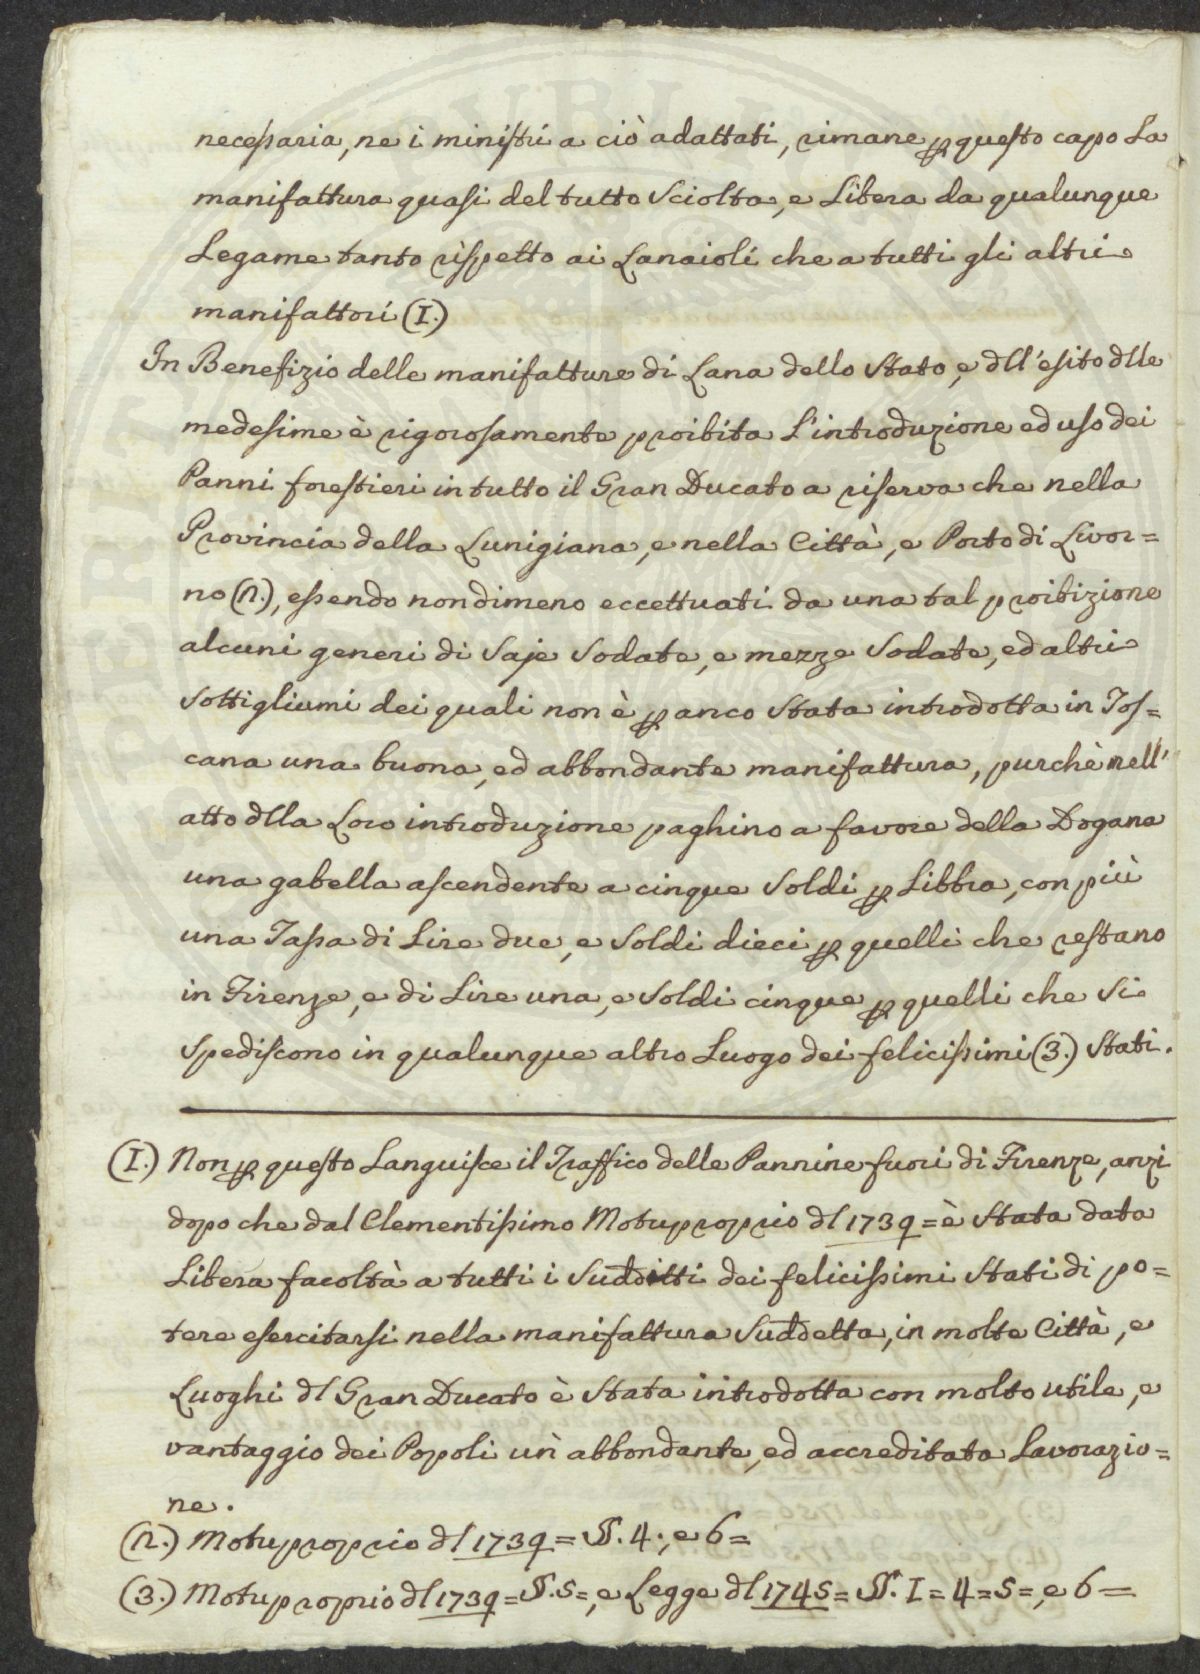 necessaria, ne i ministri a ciò adattati, rimane p questo capo La
manifattura quasi del tutto Sciolta, e Libera da qualunque
Legame tanto rispetto ai Lanaioli che a tutti gli altri
manifattori (I.)
In Benefizio delle manifatture di Lana dello Stato, e dll'esito dlle
medesime è rigorosamente proibita L'introduzione ed uso dei
Panni forestieri in tutto il Gran Ducato a riserva che nella
Provincia della Lunigiana, e nella Città, e Porto di Livor=
no (2.), essendo nondimeno eccettuati da una tal proibizione
alcuni generi di Saje Sodate, e mezze Sodate, ed altri
Sottigliumi dei quali non è p anco Stata introdotta in Tos=
cana una buona, ed abbondante manifattura, purchè nell'
atto dlla Loro introduzione paghino a favore della Dogana
una gabella ascendente a cinque Soldi p Libbra, con più
una Tassa di Lire due, e Soldi dieci p quelli che restano
in Firenze, e di Lire una, e Soldi cinque p quelli che Si
Spediscono in qualunque altro Luogo dei felicissimi (3.) Stati.
(I.) Non p questo Languisce il Traffico delle Pannine fuori di Firenze, anzi
dopo che dal Clementissimo Motuproprio dl 1739 = è Stata data
Libera facoltà a tutti i Sudditti dei felicissimi Stati di po=
tere esercitarsi nella manifattura Suddetta, in molte Città, e
Luoghi dl Gran Ducato è Stata introdotta con molto utile, e
vantaggio dei Popoli un abbondante, ed accreditata Lavorazio=
ne.
(2.) Motuproprio dl 1739 = §§. 4., e 6 =
(3.) Motuproprio dl 1739 = §. 5 =, e Legge dl 1745 = §§. I = 4 = 5 =, e 6 =